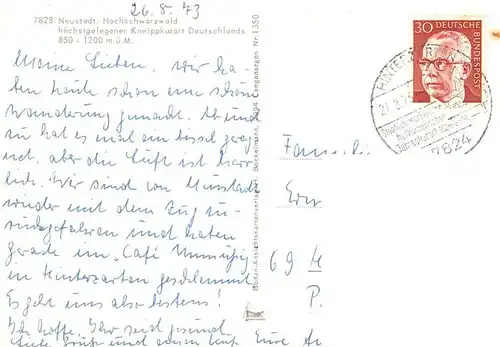 26.8.73
7828 Neustadt / Hochschwarzwald
höchstgelegener Kneippkurort Deutschlands
850 - 1200 m.ü.M.
Meine Lieben, wir ha-
ben heute schon eine schöne
Wanderung gemacht. Ab und
zu hat es mal ein bissel
net, aber die Luft ist herr-
lich. Wir sind von Neustadt
wieder mit dem Zug zu-
rückgefahren und haben
gerade im "Café Unmüßig"
in Hinterzarten geschlemmt.
Es geht uns also bestens!
Ich hoffe, Ihr seid gesund.
Liebe Grüße und einen Kuß Eure
Baden-Ansichtskartenverlag
Gengenbach Nr. 1350
Familie
69
P.
30 DEUTSCHE BUNDESPOST
HINTERZARTEN
7824